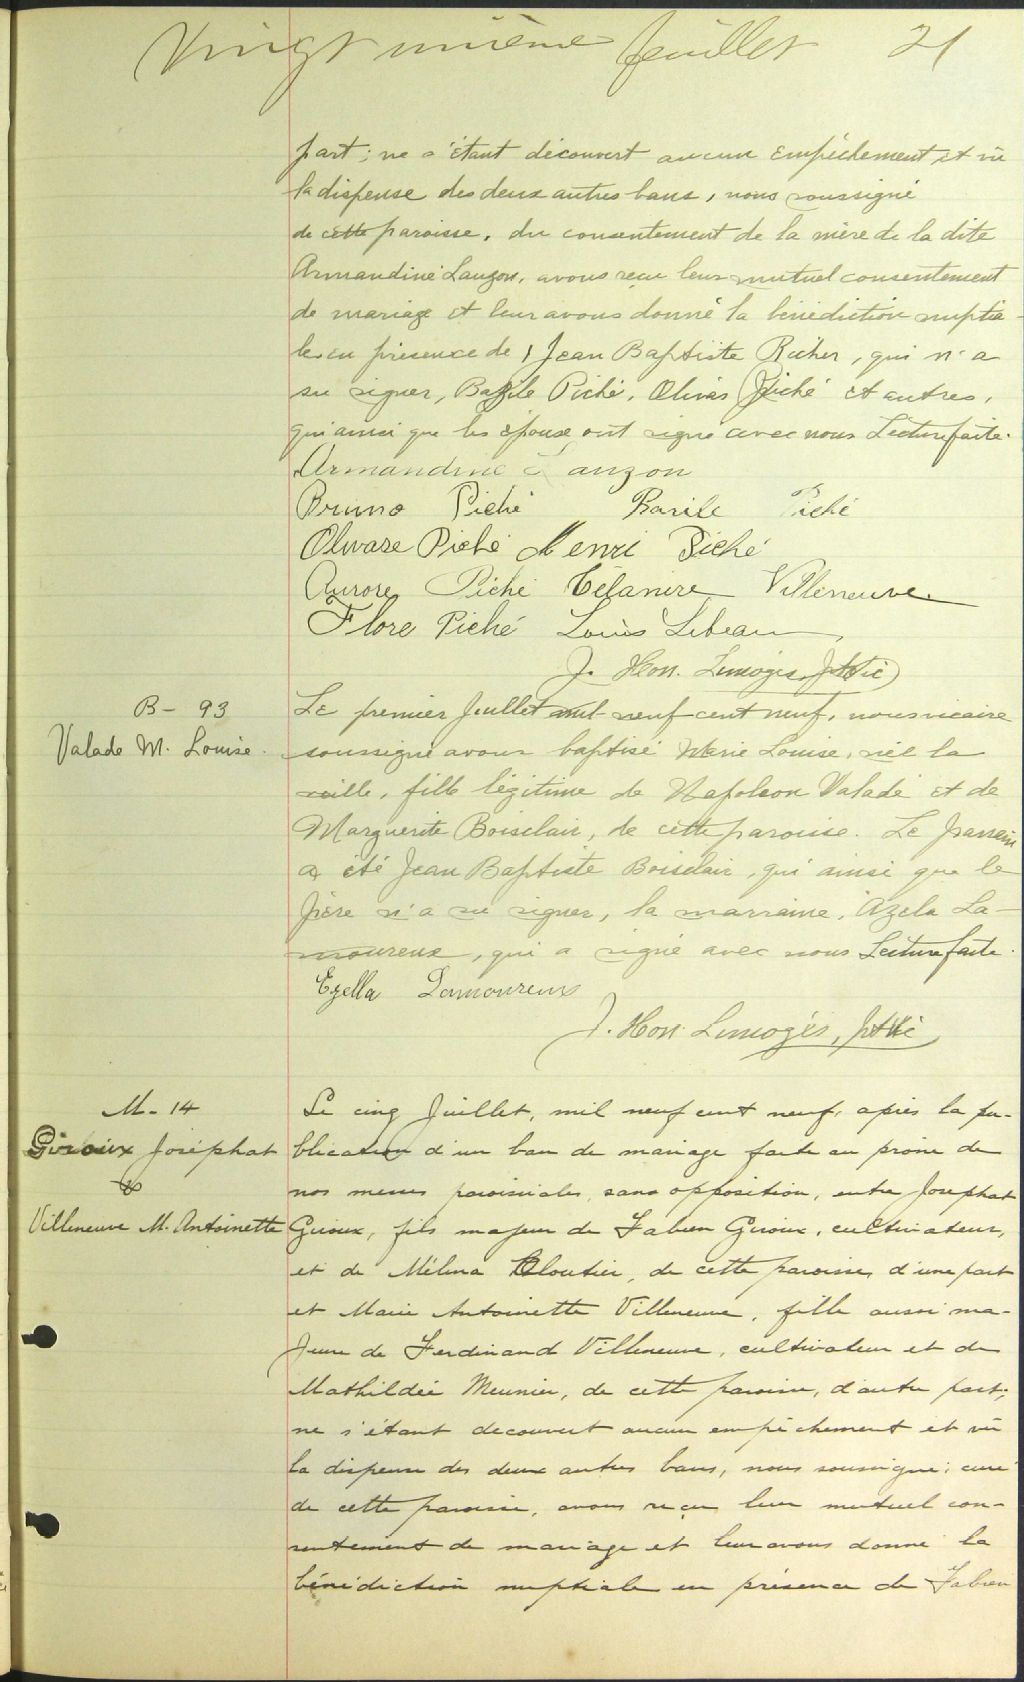 Vingt unième feuillet 21
part; ne s'étant découvert aucun empêchement et vû
la dispense des deux autres bans, nous soussigné
de cette paroisse, du consentement de la mère de la dite
Armandine Lauzon, avons reçu leur mutuel consentement
de mariage et leur avons donné la bénédiction nuptia-
le en présence de Jean Baptiste Richer, qui n'a
su signer, Bazile Piché, Olivas Piché et autres,
qui ainsi que les époux ont signé avec nous Lecture faite.
Armandine Lauzon
Bruno Piché Basile Piché
Olivase Piché Henri Piché
Aurore Piché Télanire Villeneuve
Flore Piché Louis Lebeau
J. Hon. Limoges, Ptre Vic
B- 93
Valade M. Louise.
Le premier Juillet mil neuf cent neuf, nous vicaire
soussigné avons baptisé Marie Louise, née la
veille, fille légitime de Napoléon Valade et de
Marguerite Boisclair, de cette paroisse. Le parrain
a été Jean Baptiste Boisclair, qui ainsi que le
père n'a su signer, la marraine, Azela La-
moureux, qui a signé avec nous Lecture faite.
Ezella Lamoureux
J. Hon. Limoges, Ptre Vic
M- 14
Giroux Joséphat
&
Villeneuve M. Antoinette
Le cinq Juillet, mil neuf cent neuf, après la pu-
blication d'un ban de mariage faite au prône de
nos messes paroissiales, sans opposition, entre Josephat
Giroux, fils majeur de Fabien Giroux, cultivateur,
et de Mélina Cloutier, de cette paroisse, d'une part
et Marie Antoinette Villeneuve, fille aussi ma-
jeure de Ferdinand Villeneuve, cultivateur et de
Mathildée Meunier, de cette paroisse, d'autre part;
ne s'étant decouvert aucun empêchement et vû
la dispense des deux autres bans, nous soussigné, curé
de cette paroisse, avons reçu leur mutuel con-
sentement de mariage et leur avons donné la
bénédiction nuptiale en présence de Fabien